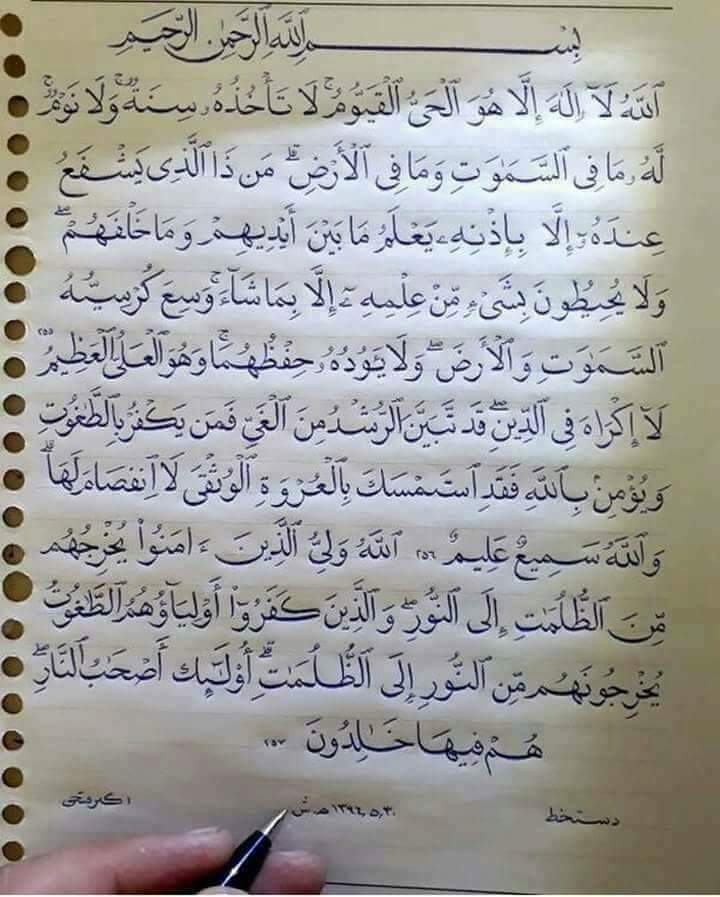 بِسْمِ ٱللَّهِ ٱلرَّحْمَٰنِ ٱلرَّحِيمِ
ٱللَّهُ لَآ إِلَٰهَ إِلَّا هُوَ ٱلْحَىُّ ٱلْقَيُّومُ ۚ لَا تَأْخُذُهُۥ سِنَةٌ وَلَا نَوْمٌ ۚ
لَّهُۥ مَا فِى ٱلسَّمَٰوَٰتِ وَمَا فِى ٱلْأَرْضِ ۗ مَن ذَا ٱلَّذِى يَشْفَعُ
عِندَهُۥٓ إِلَّا بِإِذْنِهِۦ ۚ يَعْلَمُ مَا بَيْنَ أَيْدِيهِمْ وَمَا خَلْفَهُمْ ۖ
وَلَا يُحِيطُونَ بِشَىْءٍ مِّنْ عِلْمِهِۦٓ إِلَّا بِمَا شَآءَ ۚ وَسِعَ كُرْسِيُّهُ
ٱلسَّمَٰوَٰتِ وَٱلْأَرْضَ ۖ وَلَا يَـُٔودُهُۥ حِفْظُهُمَا ۚ وَهُوَ ٱلْعَلِىُّ ٱلْعَظِيمُ ٢٥٥
لَآ إِكْرَاهَ فِى ٱلدِّينِ ۖ قَد تَّبَيَّنَ ٱلرُّشْدُ مِنَ ٱلْغَىِّ ۚ فَمَن يَكْفُرْ بِٱلطَّٰغُوتِ
وَيُؤْمِنۢ بِٱللَّهِ فَقَدِ ٱسْتَمْسَكَ بِٱلْعُرْوَةِ ٱلْوُثْقَىٰ لَا ٱنفِصَامَ لَهَا ۗ
وَٱللَّهُ سَمِيعٌ عَلِيمٌ ٢٥٦ ٱللَّهُ وَلِىُّ ٱلَّذِينَ ءَامَنُوا۟ يُخْرِجُهُم
مِّنَ ٱلظُّلُمَٰتِ إِلَى ٱلنُّورِ ۖ وَٱلَّذِينَ كَفَرُوٓا۟ أَوْلِيَآؤُهُمُ ٱلطَّٰغُوتُ
يُخْرِجُونَهُم مِّنَ ٱلنُّورِ إِلَى ٱلظُّلُمَٰتِ ۗ أُو۟لَٰٓئِكَ أَصْحَٰبُ ٱلنَّارِ ۖ
هُمْ فِيهَا خَٰلِدُونَ ٢٥٧
دستخط ١٣٩٦٫٥٫٣٠ هـ ش